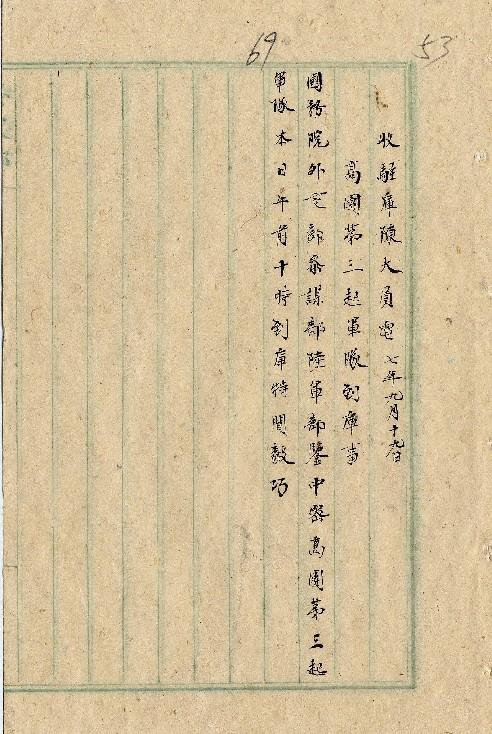 53
69
收駐庫陳大員電 七年九月十九日
高團第三起軍隊到庫事
國務院外交部參謀部陸軍部鑒中密高團第三起
軍隊本日午前十時到庫特聞毅巧